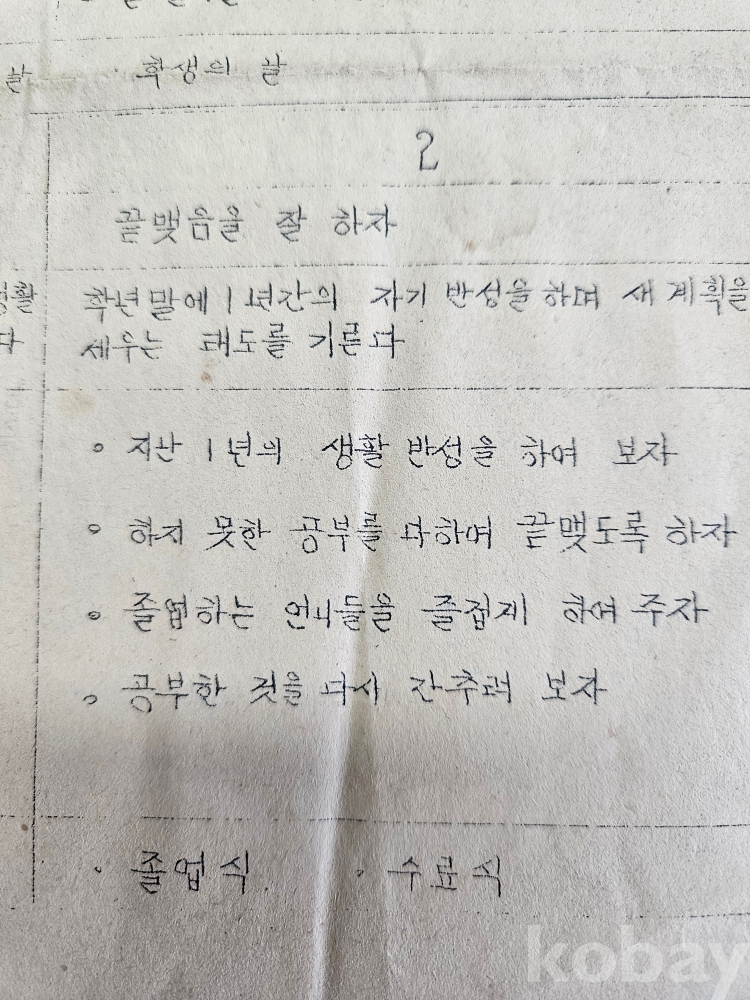 날 · 학생의 날
2
끝맺음을 잘 하자
학년말에 1년간의 자기 반성을하며 새 계획을
세우는 태도를 기른다
활
다
◦ 지난 1년의 생활 반성을 하여 보자
◦ 하지 못한 공부를 다하여 끝맺도록 하자
◦ 졸업하는 언니들을 즐겁게 하여 주자
◦ 공부한 것을 다시 간추려 보자
· 졸업식 · 수료식
kobay